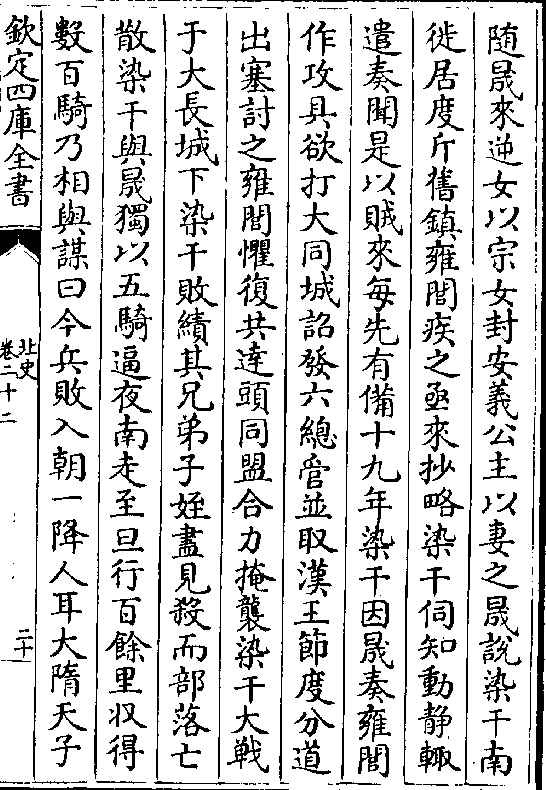 随晟來逆女以宗女封安義公主以妻之晟說染干南
徙居度斤舊鎮雍閭疾之亟來抄略染干伺知動静輙
遣奏聞是以賊來每先有備十九年染干因晟奏雍閭
作攻具欲打大同城詔發六總管並取漢王節度分道
出塞討之雍閭懼復共達頭同盟合力掩襲染干大戰
于大長城下染干敗績其兄弟子姪盡見殺而部落亡
散染干與晟獨以五騎逼夜南走至旦行百餘里収得
數百騎乃相與謀曰今兵敗入朝一降人耳大隋天子
欽定四庫全書
北史
卷二十二
二十